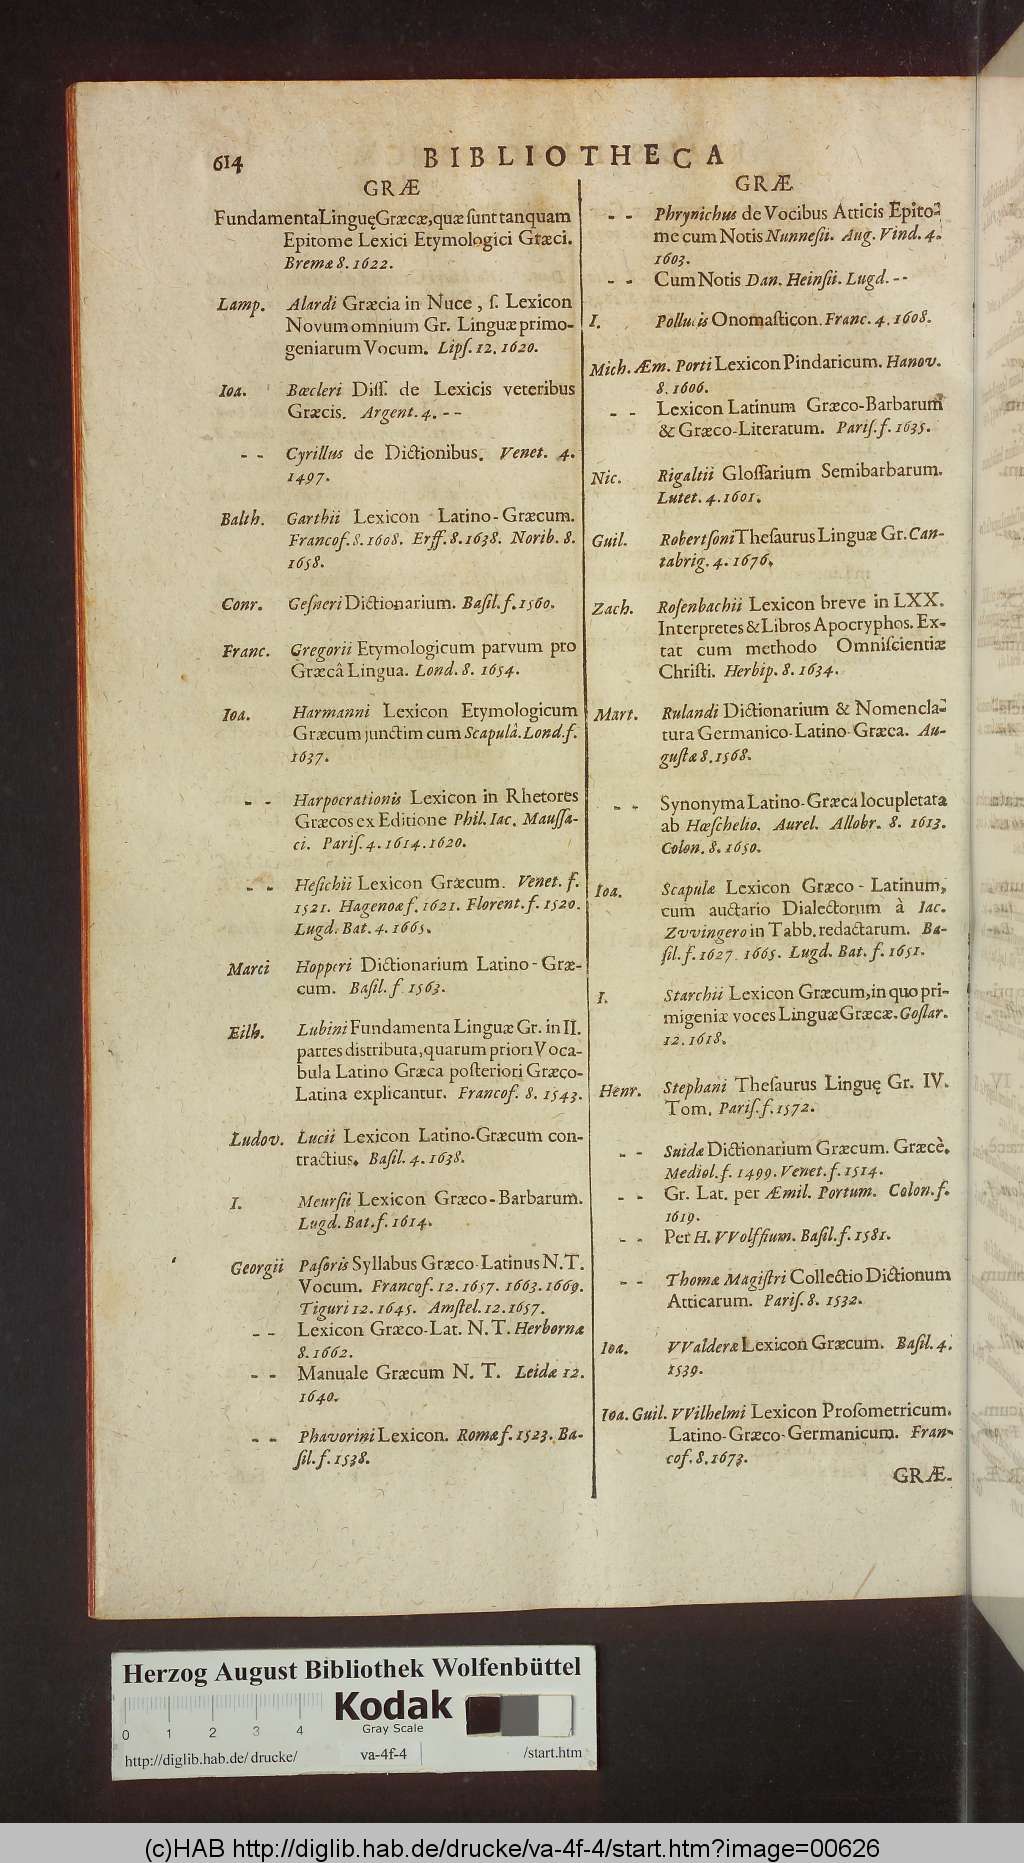 614
BIBLIOTHECA
GRÆ
Fundamenta Linguę Græcæ, quæ ſunt tanquam
Epitome Lexici Etymologici Græci.
Bremæ 8. 1622.
Lamp. Alardi Græcia in Nuce, ſ. Lexicon
Novum omnium Gr. Linguæ primo-
geniarum Vocum. Lipſ. 12. 1620.
Ioa. Bœcleri Diſſ. de Lexicis veteribus
Græcis. Argent. 4. - -
- - Cyrillus de Dictionibus. Venet. 4.
1497.
Balth. Garthii Lexicon Latino-Græcum.
Francof. 8. 1608. Erff. 8. 1638. Norib. 8.
1658.
Conr. Geſneri Dictionarium. Baſil. f. 1560.
Franc. Gregorii Etymologicum parvum pro
Græcâ Lingua. Lond. 8. 1654.
Ioa. Harmanni Lexicon Etymologicum
Græcum junctim cum Scapulâ. Lond. f.
1637.
- - Harpocrationis Lexicon in Rhetores
Græcos ex Editione Phil. Iac. Mauſſa-
ci. Pariſ. 4. 1614. 1620.
- - Heſichii Lexicon Græcum. Venet. f.
1521. Hagenoæ f. 1621. Florent. f. 1520.
Lugd. Bat. 4. 1665.
Marci Hopperi Dictionarium Latino-Græ-
cum. Baſil. f 1563.
Eilh. Lubini Fundamenta Linguæ Gr. in II.
partes distributa, quarum priori Voca-
bula Latino Græca poſteriori Græco-
Latina explicantur. Francof. 8. 1543.
Ludov. Lucii Lexicon Latino-Græcum con-
tractius. Baſil. 4. 1638.
I. Meurſii Lexicon Græco-Barbarum.
Lugd. Bat. f. 1614.
Georgii Paſoris Syllabus Græco-Latinus N. T.
Vocum. Francof. 12. 1657. 1663. 1669.
Tiguri 12. 1645. Amſtel. 12. 1657.
- - Lexicon Græco-Lat. N. T. Herbornæ
8. 1662.
- - Manuale Græcum N. T. Leidæ 12.
1640.
- - Phavorini Lexicon. Romæ f. 1523. Ba-
ſil. f. 1538.
GRÆ
- - Phrynichus de Vocibus Atticis Epito-
me cum Notis Nunneſii. Aug. Vind. 4.
1603.
- - Cum Notis Dan. Heinſii. Lugd. - -
I. Pollucis Onomaſticon. Franc. 4. 1608.
Mich. Æm. Porti Lexicon Pindaricum. Hanov.
8. 1606.
- - Lexicon Latinum Græco-Barbarum
& Græco-Literatum. Pariſ. f. 1635.
Nic. Rigaltii Gloſſarium Semibarbarum.
Lutet. 4. 1601.
Guil. Robertſoni Theſaurus Linguæ Gr. Can-
tabrig. 4. 1676.
Zach. Roſenbachii Lexicon breve in LXX.
Interpretes & Libros Apocryphos. Ex-
tat cum methodo Omniſcientiæ
Chriſti. Herbip. 8. 1634.
Mart. Rulandi Dictionarium & Nomencla-
tura Germanico-Latino-Græca. Au-
guſtæ 8. 1568.
- - Synonyma Latino-Græca locupletata
ab Hœſchelio. Aurel. Allobr. 8. 1613.
Colon. 8. 1650.
Ioa. Scapulæ Lexicon Græco-Latinum,
cum auctario Dialectorum à Iac.
Zvvingero in Tabb. redactarum. Ba-
ſil. f. 1627. 1665. Lugd. Bat. f. 1651.
I. Starchii Lexicon Græcum, in quo pri-
migeniæ voces Linguæ Græcæ. Goſlar.
12. 1618.
Henr. Stephani Theſaurus Linguę Gr. IV.
Tom. Pariſ. f. 1572.
- - Suidæ Dictionarium Græcum. Græcè.
Mediol. f. 1499. Venet. f. 1514.
- - Gr. Lat. per Æmil. Portum. Colon. f.
1619.
- - Per H. VVolffium. Baſil. f. 1581.
- - Thomæ Magiſtri Collectio Dictionum
Atticarum. Pariſ. 8. 1532.
Ioa. VValderæ Lexicon Græcum. Baſil. 4.
1539.
Ioa. Guil. VVilhelmi Lexicon Proſometricum.
Latino-Græco-Germanicum. Fran-
cof. 8. 1673.
GRÆ.
Herzog August Bibliothek Wolfenbüttel
Kodak
Gray Scale
0 1 2 3 4
http://diglib.hab.de/drucke/ va-4f-4 /start.htm
(c)HAB http://diglib.hab.de/drucke/va-4f-4/start.htm?image=00626